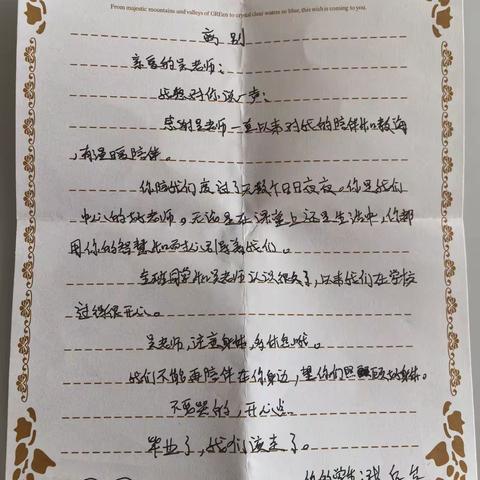 From majestic mountains and valleys of GREen to crystal clear waters so blue, this wish is coming to you.
离别
亲爱的吴老师:
我想对你说一声:
感谢吴老师一直以来对我的陪伴和教诲
,有温暖陪伴。
你陪我们度过了无数个日日夜夜。你是我们
中心的好老师。无论是在课堂上还是生活中,你都
用你的智慧和耐心引导着我们。
全班同学和吴老师认识很久了,以来我们在学校
过得很开心。
吴老师,注意身体,多休息哦。
我们不能再陪伴在你身边,望你们照顾身体。
不要哭的,开心点。
毕业了,我们该走了。
你的学生:张